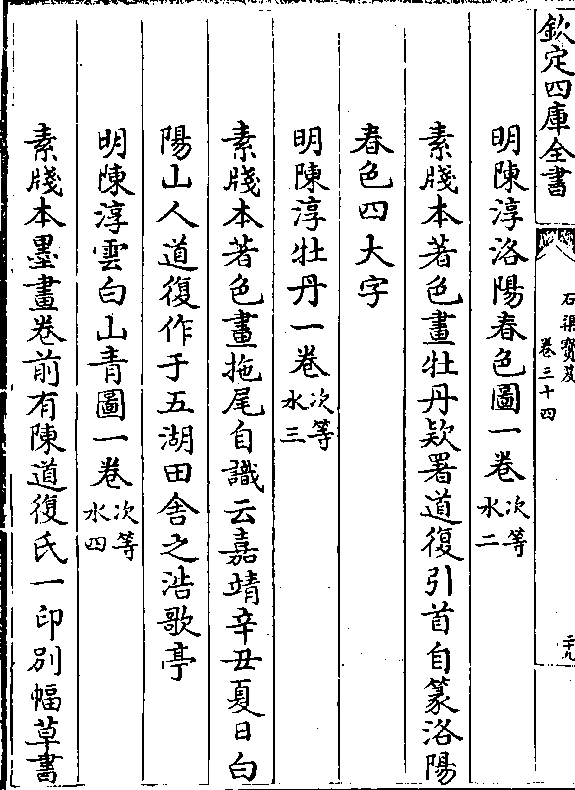 欽定四庫全書
石渠寳笈
卷三十四
二十九
明陳淳洛陽春色圖一卷次等水二
素牋本著色畫牡丹欵署道復引首自篆洛陽
春色四大字
明陳淳牡丹一卷次等水三
素牋本著色畫拖尾自識云嘉靖辛丑夏日白
陽山人道復作于五湖田舍之浩歌亭
明陳淳雲白山青圖一卷次等水四
素牋本墨畫卷前有陳道復氏一印別幅草書